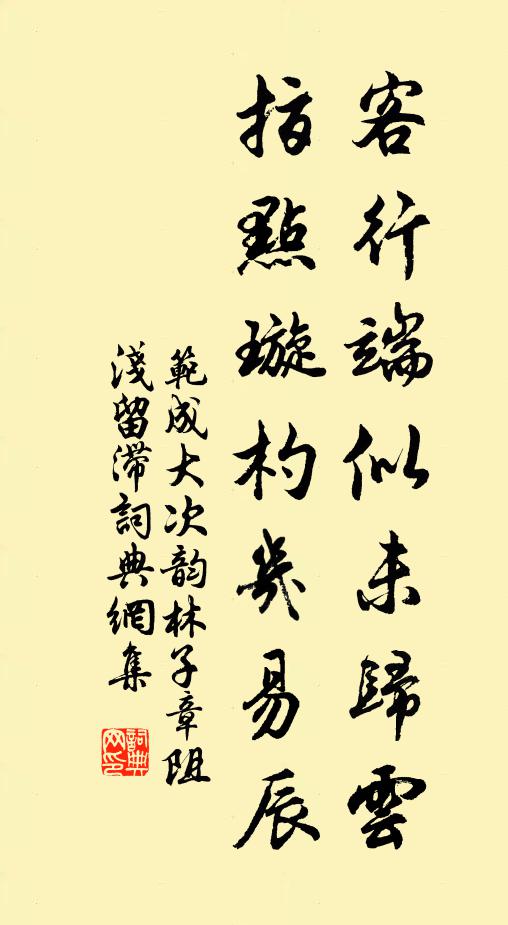 客行端似未歸雲
指點璇杓幾易辰
範成大次韵林子章阻
淺留滯詞典網集
詞典
网印